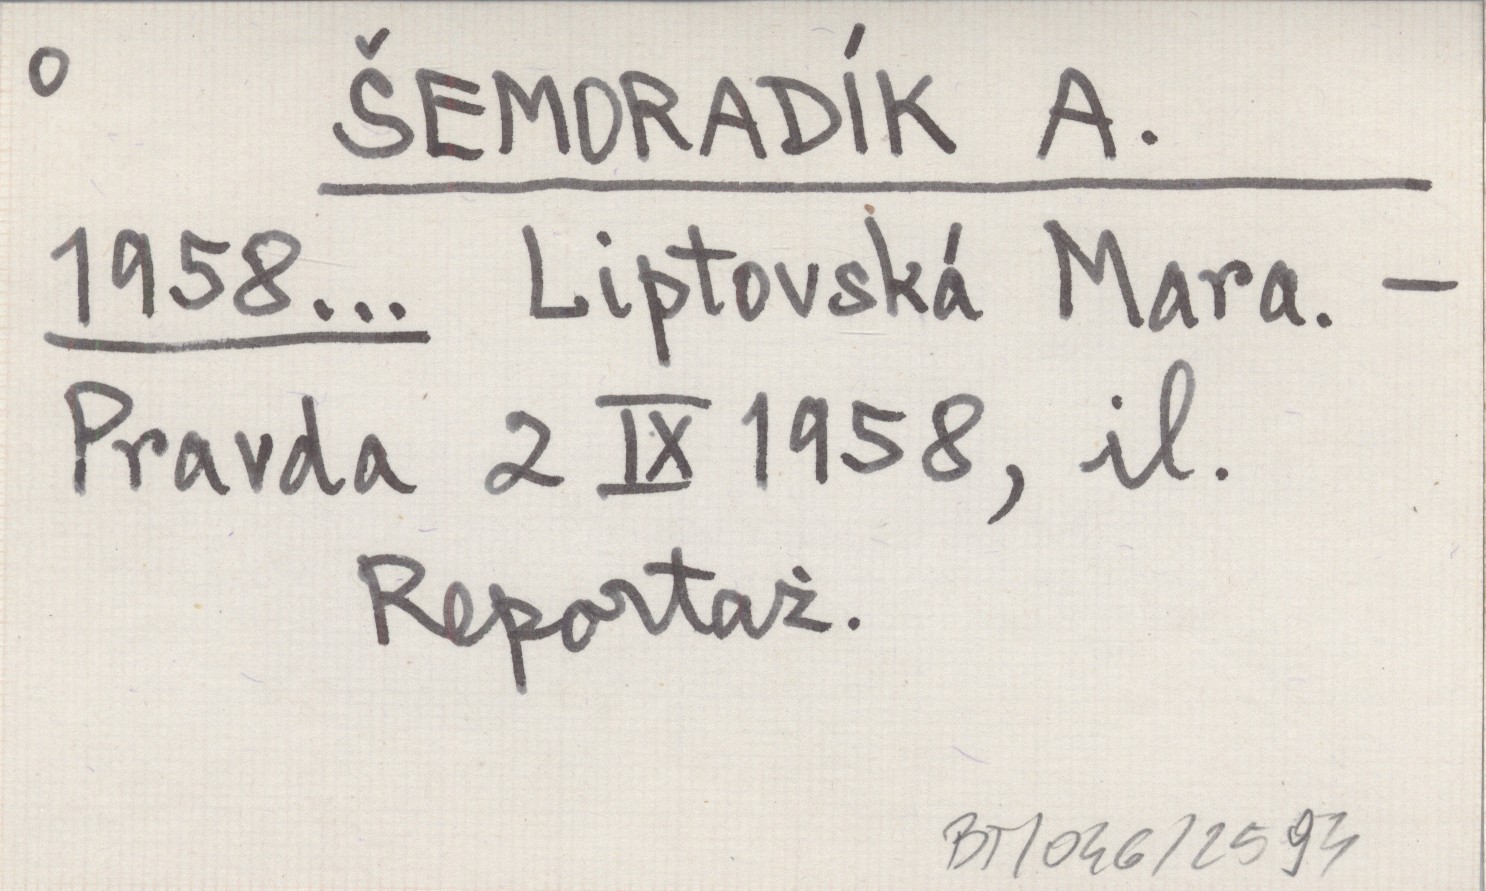 o ŠEMORADÍK A.
1958... Liptovská Mara. –
Pravda 2 IX 1958, il.
Reportaż.
BT/046/2593